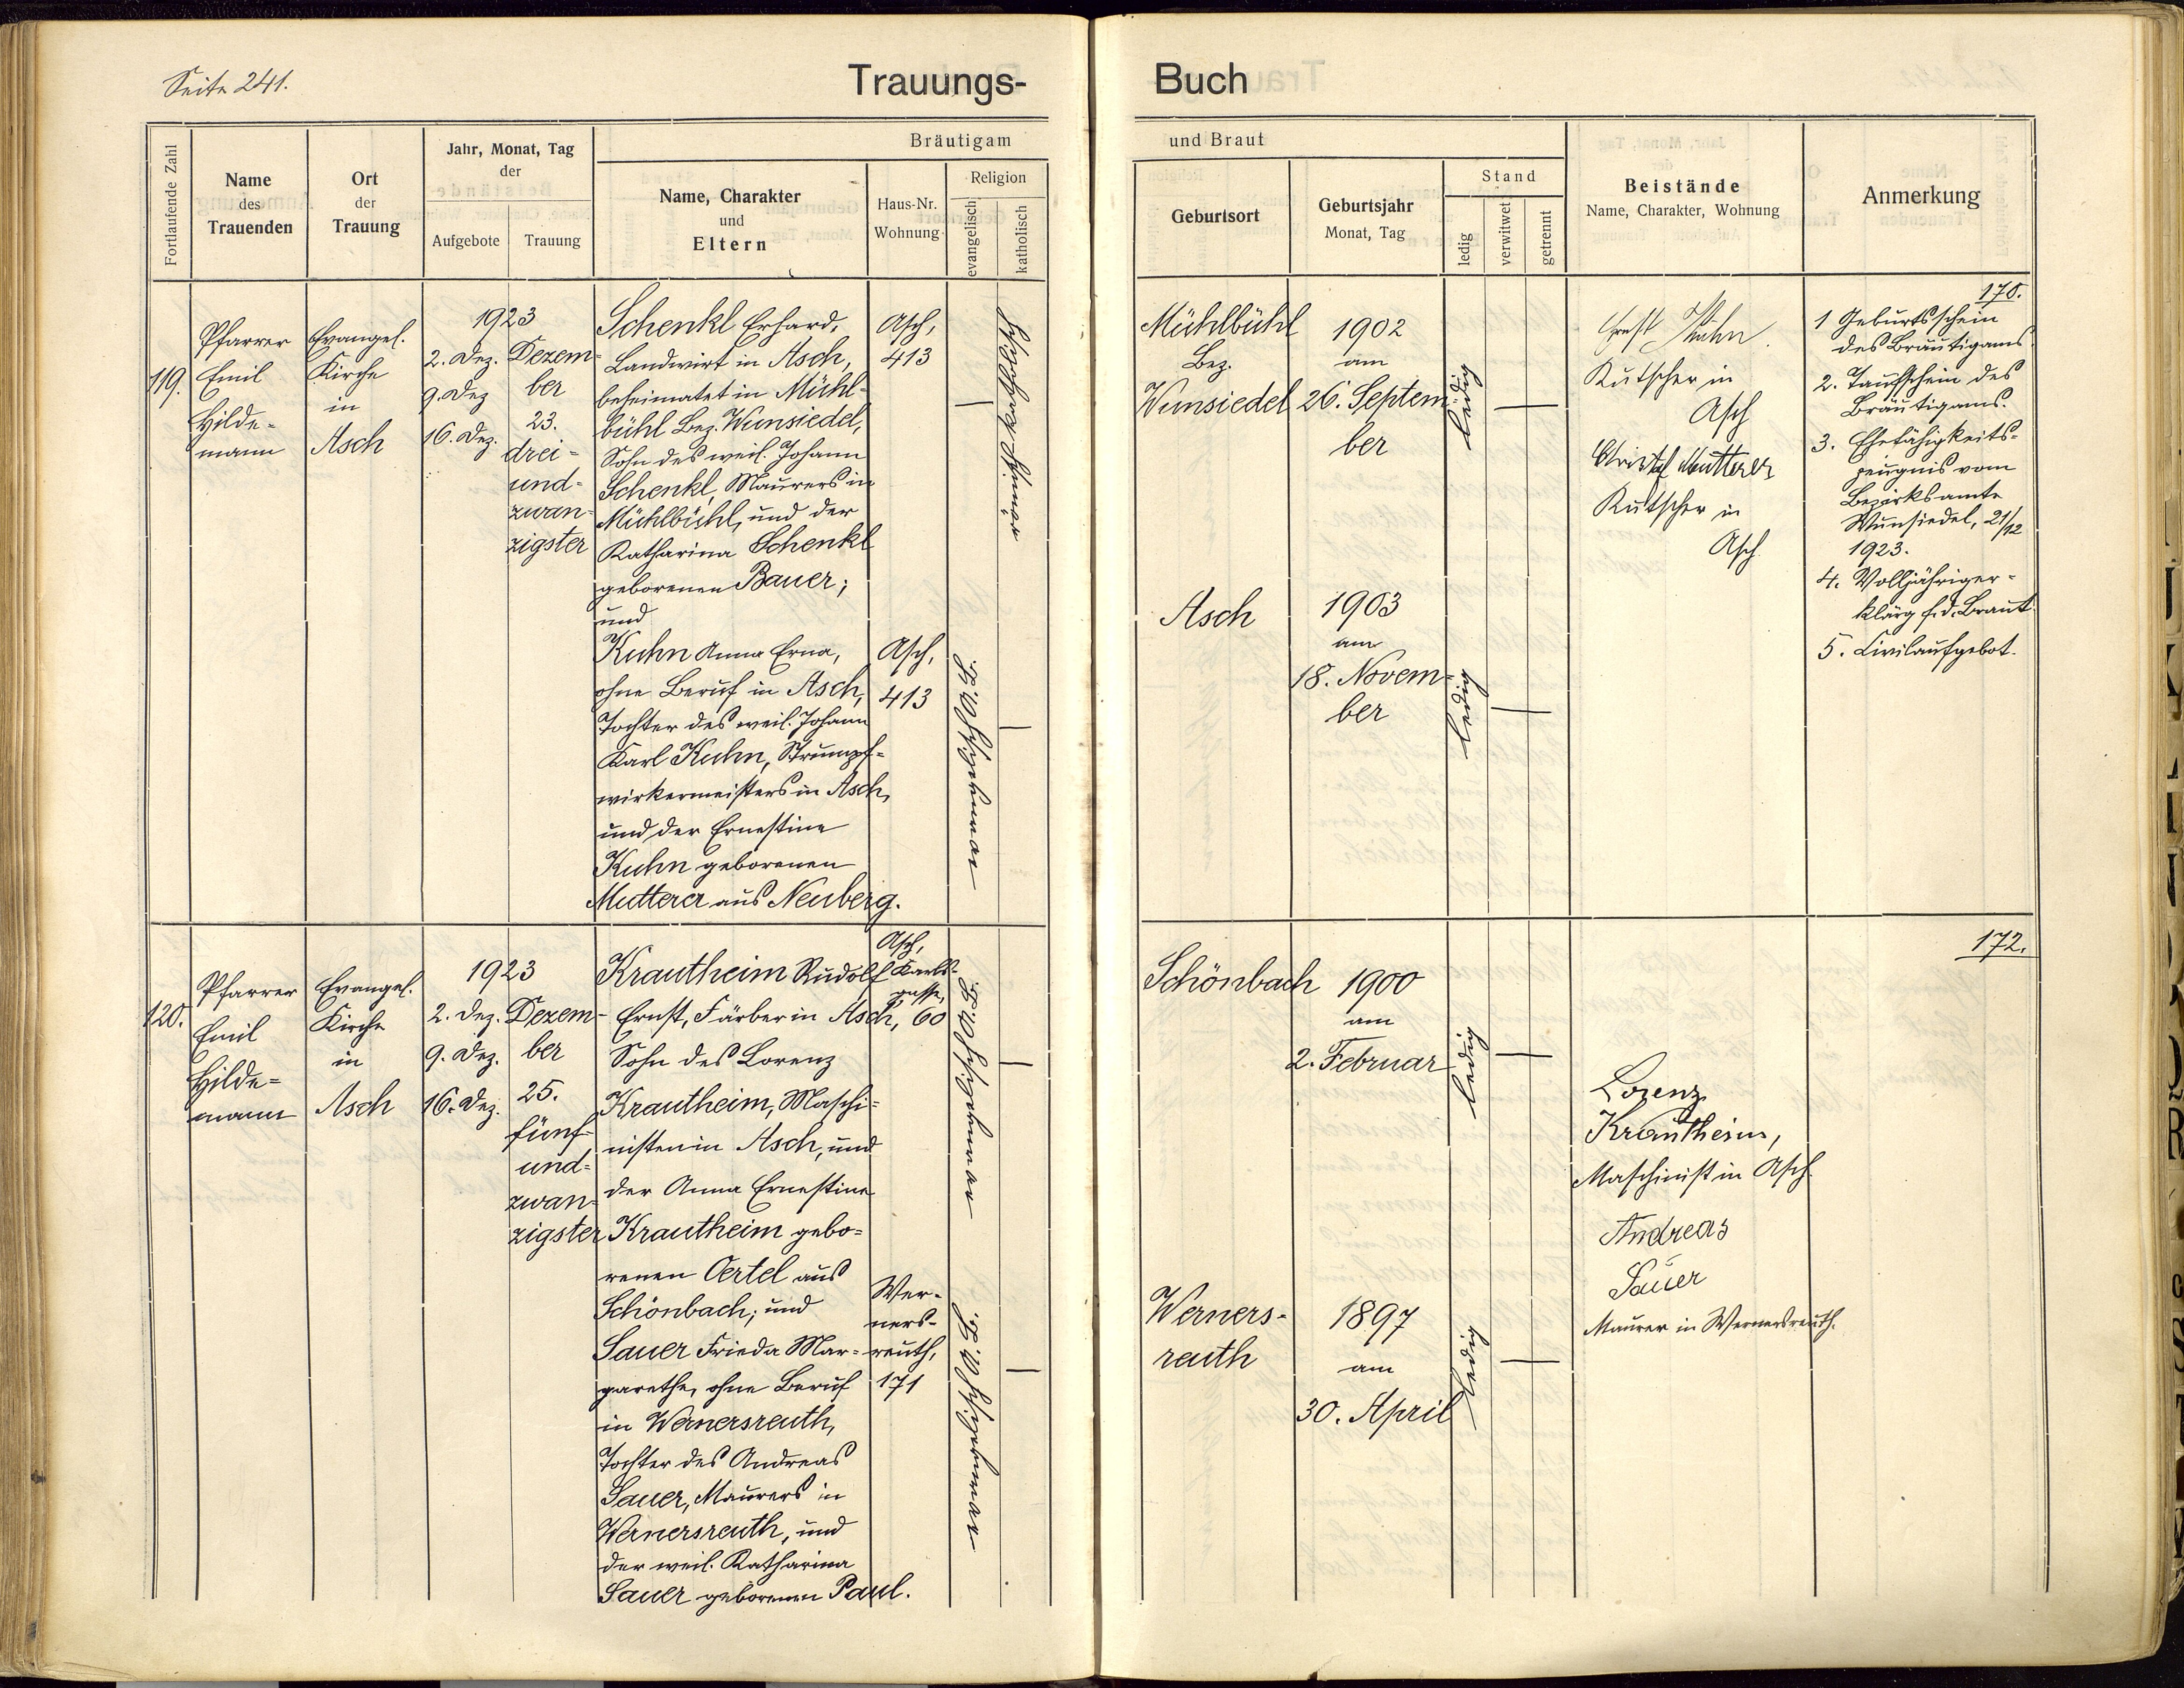 Seite 241.
Trauungs-
Buch
Fortlaufende Zahl
Name
des
Trauenden
Ort
der
Trauung
Jahr, Monat, Tag
der
Aufgebote
Trauung
Bräutigam
Name, Charakter
und
Eltern
Haus-Nr.
Wohnung
Religion
evangelisch
katholisch
und Braut
Geburtsort
Geburtsjahr
Monat, Tag
Stand
ledig
verwitwet
getrennt
Beistände
Name, Charakter, Wohnung
Anmerkung
119.
Pfarrer
Emil
Hilde-
mann
Evangel.
Kirche
in
Asch
1923
2. Dez.
9. Dez
16. Dez.
Dezem-
ber
23.
drei-
und-
zwan-
zigster
Schenkl Erhard,
Landwirt in Asch,
beheimatet in Mühl-
bühl Bez. Wunsiedel,
Sohn des weil. Johann
Schenkl, Maurers in
Mühlbühl, und der
Katharina Schenkl
geborenen Bauer;
und
Kuhn Anna Erna,
ohne Beruf in Asch,
Tochter des weil. Johann
Karl Kuhn, Strumpf-
wirkermeisters in Asch,
und der Ernestine
Kuhn geborenen
Mutterer aus Neuberg.
Asch,
413
Asch,
413
—
—
Mühlbühl
Bez.
Wunsiedel
1902
am
26. Septem-
ber
ledig
—
Asch
1903
am
18. Novem-
ber
ledig
—
Ernst Kuhn.
Kutscher in
Asch
Christof Mutterer
Kutscher in
Asch
170.
1 Geburtsschein
des Bräutigams.
2. Taufschein des
Bräutigams.
3. Ehefähigkeits-
zeugnis vom
Bezirksamte
Wunsiedel, 21/12
1923.
4. Volljähriger-
klärg f. d. Braut.
5. Civilaufgebot.
120.
Pfarrer
Emil
Hilde-
mann
Evangel.
Kirche
in
Asch
1923
2. Dez.
9. Dez.
16. Dez.
Dezem-
ber
25.
fünf-
und-
zwan-
zigster
Krautheim Rudolf
Ernst, Färber in Asch,
Sohn des Lorenz
Krautheim, Maschi-
nisten in Asch, und
der Anna Ernestine
Krautheim gebo-
renen Oertel aus
Schönbach; und
Sauer Frieda Mar-
garethe, ohne Beruf
in Wernersreuth,
Tochter des Andreas
Sauer, Maurers in
Wernersreuth, und
der weil. Katharina
Sauer geborenen Paul.
Asch,
Karls-
gasse,
60
Wer-
ners-
reuth,
171
—
—
Schönbach
1900
am
2. Februar
ledig
—
Werners-
reuth
1897
am
30. April
ledig
—
Lorenz
Krautheim,
Maschinist in Asch.
Andreas
Sauer
Maurer in Wernersreuth.
172.